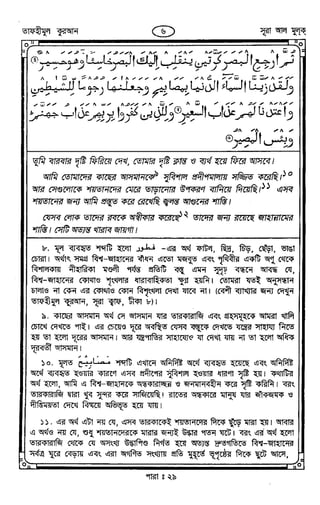 তাফহীমুল কুরআন ৬ সূরা আল মুলক
ثُمَّ ارْجِعِ الْبَصَرَ كَرَّتَيْنِ يَنْقَلِبْ إِلَيْكَ الْبَصَرُ خَاسِئًا وَّهُوَ حَسِيْرٌ
وَلَقَدْ زَيَّنَّا السَّمَاءَ الدُّنْيَا بِمَصَابِيْحَ وَجَعَلْنٰهَا رُجُوْمًا لِّلشَّيٰطِيْنِ
وَاَعْتَدْنَا لَهُمْ عَذَابَ السَّعِيْرِ وَلِلَّذِيْنَ كَفَرُوْا بِرَبِّهِمْ عَذَابُ جَهَنَّمَ
وَبِئْسَ الْمَصِيْرُ
তুমি বারবার দৃষ্টি ফিরিয়ে দেখ, তোমার দৃষ্টি ক্লান্ত ও ব্যর্থ হয়ে ফিরে আসবে।
আমি তোমাদের কাছের আসমানকে সুবিশাল প্রদীপমালায় সজ্জিত করেছি।১০
আর সেগুলোকে শয়তানদের মেরে তাড়ানোর উপকরণ বানিয়ে দিয়েছি।১১ এসব
শয়তানের জন্য আমি প্রস্তুত করে রেখেছি জ্বলন্ত আগুনের শাস্তি।
যেসব লোক তাদের রবকে অস্বীকার করেছে১২ তাদের জন্য রয়েছে জাহান্নামের
শাস্তি। সেটি অত্যন্ত খারাপ জায়গা।
৮. মূল ব্যবহৃত শব্দটি হলো فطور -এর অর্থ ফাটল, ছিদ্র, চিড়, ছেঁড়া, ভাঙা
চোরা। অর্থাৎ সমগ্র বিশ্ব-জাহানের বাঁধন এতো মজবুত এবং পৃথিবীর একটি অণু থেকে
বিশালকায় নীহারিকা মণ্ডলী পর্যন্ত প্রতিটি বস্তু এমন সুদৃঢ় বন্ধনে আবদ্ধ যে,
বিশ্ব-জাহানের কোথাও শৃংখলার ধারাবাহিকতা ক্ষুণ্ন হয়নি। তোমরা যতই অনুসন্ধান
চালাও না কেন এর কোথাও কোন বিশৃংখলা দেখা যাবে না। (বেশী ব্যাখ্যার জন্য দেখুন
তাফহীমুল কুরআন, সূরা ক্বাফ, টীকা ৮)।
৯. কাছের আসমান অর্থ সে আসমান যার তারকারাজি এবং গ্রহসমূহকে আমরা খালি
চোখে দেখতে পাই। এর চেয়েও দূরে অবস্থিত যেসব বস্তুকে দেখতে যন্ত্রের সাহায্য নিতে
হয় তা হলো দূরের আসমান। আর যন্ত্রপাতির সাহায্যেও যা দেখা যায় না তা হলো অধিক
দূরবর্তী আসমান।
১০. মূলত مصابيح শব্দটি এখানে অনির্দিষ্ট অর্থে ব্যবহৃত হয়েছে এবং অনির্দিষ্ট
অর্থে ব্যবহৃত হওয়ার কারণে এসব প্রদীপের সুবিশাল হওয়ার ধারণা সৃষ্টি হয়। কথাটির
অর্থ হলো, আমি এ বিশ্ব-জাহানকে অন্ধকারাচ্ছন্ন ও জনমানবহীন করে সৃষ্টি করিনি। বরং
তারকারাজি দ্বারা খুব সুন্দর করে সাজিয়েছি। রাতের অন্ধকারে মানুষ যার জাঁকজমক ও
দীপ্তিময়তা দেখে বিস্ময়ে অভিভূত হয়ে যায়।
১১. এর অর্থ এটা নয় যে, এসব তারকাকেই শয়তানদের দিকে ছুঁড়ে মারা হয়। আবার
এ অর্থও নয় যে, শুধু শয়তানদেরকে মারার জন্যই উল্কার পতন ঘটে। বরং এর অর্থ হলো
তারকারাজি থেকে যে অসংখ্য উল্কাপিণ্ড নির্গত হয়ে অত্যন্ত দ্রুতগতিতে বিশ্ব-জাহানের
সর্বত্র ঘুরে বেড়ায় এবং এরা অগণিত সংখ্যায় প্রতি মুহূর্তে ভূপৃষ্ঠের দিকে ছুটে আসে,
পারা : ২৯